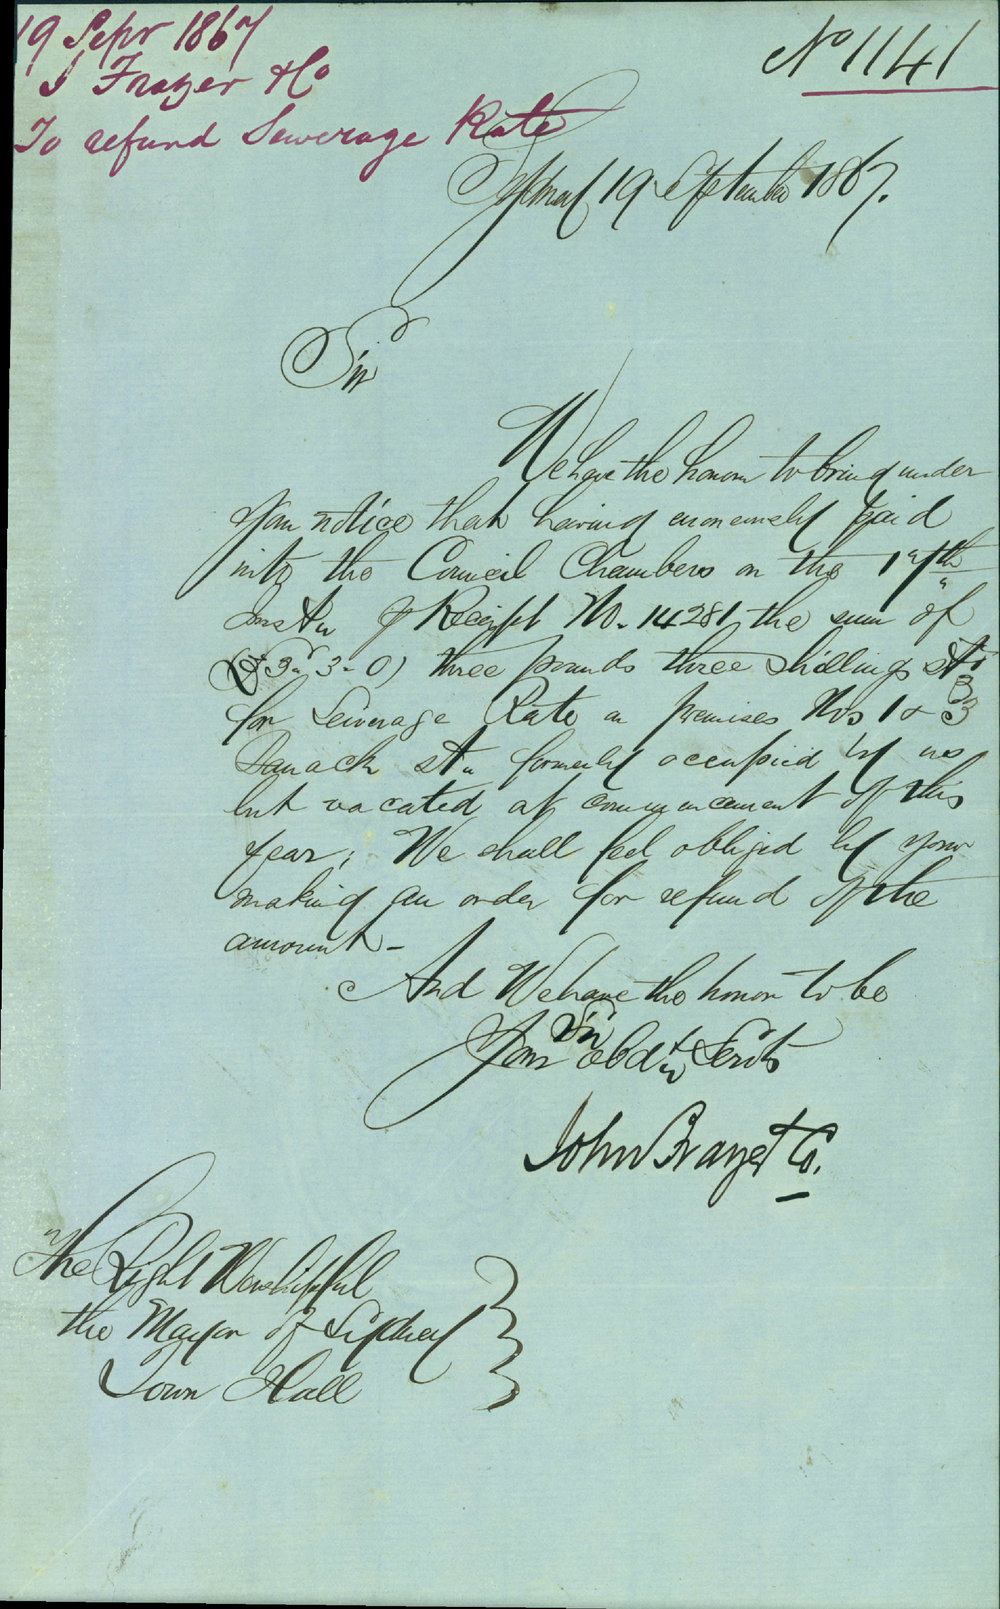 19 Sepr 1867
J Frazer & Co
To refund Sewerage Rate
No 1141
Sydney 19 September 1867.
Sir
We have the honor to bring under
your notice that having erroneously paid
into the Council Chambers on the 17th
Inst. Receipt No. 14281 the sum of
(£3. 3. 0) three pounds three shillings stg
for Sewerage Rate on premises Nos 1 & 3
Barrack St. formerly occupied by us
but vacated at commencement of this
year; We shall feel obliged by your
making an order for refund of the
amount -
And We have the honor to be
Sir
Your obdt Servts
John Frazer & Co.
The Right Worshipful
the Mayor of Sydney
Town Hall